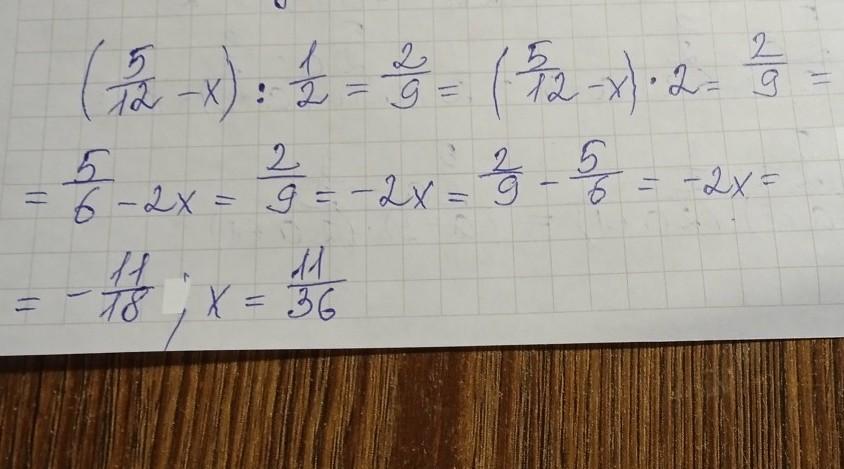 (5/12 - x) : 1/2 = 2/9 = (5/12 - x) · 2 = 2/9 =
= 5/6 - 2x = 2/9 = -2x = 2/9 - 5/6 = -2x =
= - 11/18 ; x = 11/36